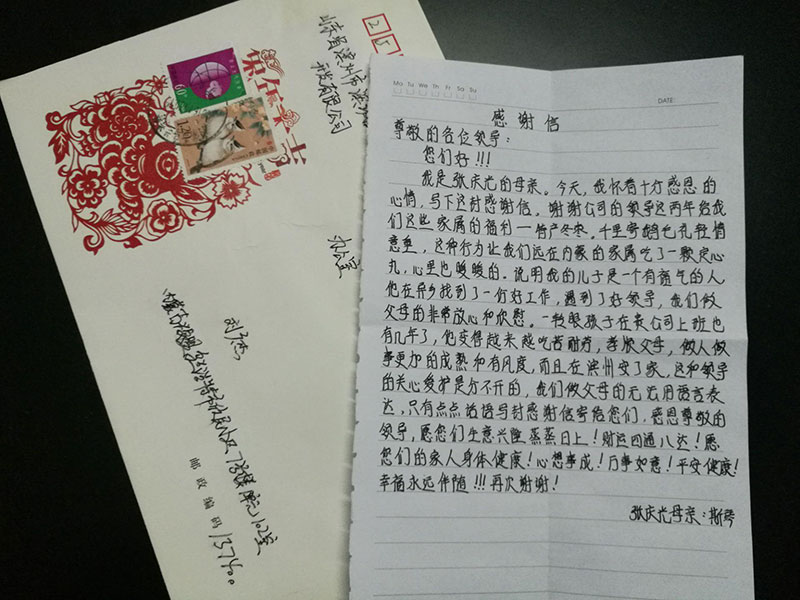 Mo Tu We Th Fr Sa Su
DATE:
感谢信
尊敬的各位领导：
您们好!!!
我是张庆尤的母亲。今天，我怀着十万感恩的
心情，写下这封感谢信。谢谢公司的领导这两年给我
们这些家属的福利一特产冬枣。千里寄鹅毛礼轻情
意重，这种行为让我们远在内蒙的家属吃了一颗定心
丸，心里也暖暖的。说明我的儿子是一个有福气的人
他在异乡找到了一份好工作，遇到了好领导，我们做
父母的非常放心和欣慰。一转眼孩子在贵公司上班也
有几年了，他变得越来越吃苦耐劳，孝顺父母，做人做
事更加的成熟和有风度，而且在滨州安了家，这和领导
的关心爱护是分不开的，我们做父母的无法用语言表
达，只有点点话语写封感谢信寄给您们，感恩尊敬的
领导，愿您们生意兴隆蒸蒸日上！财运四通八达！愿
您们的家人身体健康！心想事成！万事如意！平安健康！
幸福永远伴随!!!再次谢谢！
张庆尤母亲：
2 5
山东省滨州市
有限公司
办公室
1.20
邮政编码